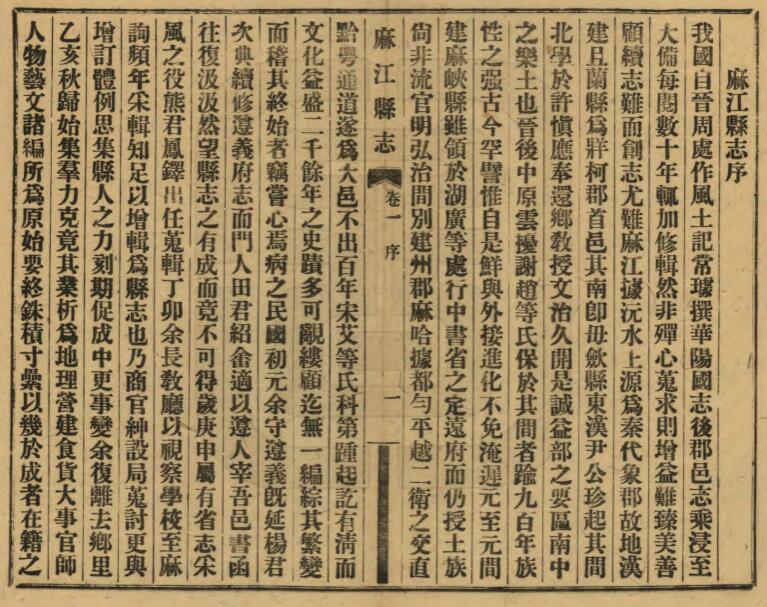 麻江縣志序
我國自晉周處作風土記常璩撰華陽國志後郡邑志乘浸至
大備每閱數十年輒加修輯然非殫心蒐求則增益難臻美善
顧續志難而創志尤難麻江據沅水上源爲秦代象郡故地漢
建且蘭縣爲牂柯郡首邑其南卽毋斂縣東漢尹公珍起其間
北學於許愼應奉還鄉敎授文治久開是誠益部之要區南中
之樂土也晉後中原雲擾謝趙等氏保於其間者踰九百年族
性之强古今罕譬惟自是鮮與外接進化不免淹遲元至元間
建麻峽縣雖領於湖廣等處行中書省之定遠府而仍授土族
尙非流官明弘治間別建州郡麻哈據都勻平越二衛之交直
麻江縣志
卷一 序
一
黔粤通道遂爲大邑不出百年宋艾等氏科第踵起訖有淸而
文化益盛二千餘年之史蹟多可覶縷顧迄無一編綜其繁變
而稽其終始者竊嘗心焉病之民國初元余守遵義旣延楊君
次典續修遵義府志而門人田君紹畬適以遵人宰吾邑書函
往復汲汲然望縣志之有成而竟不可得歲庚申屬有省志采
風之役熊君鳳鐸出任蒐輯丁卯余長敎廳以視察學校至麻
詢頻年采輯知足以增輯爲縣志也乃商官紳設局蒐討更與
增訂體例思集縣人之力刻期促成中更事變余復離去鄉里
乙亥秋歸始集羣力克竟其業析爲地理營建食貨大事官師
人物藝文諸編所爲原始要終銖積寸纍以幾於成者在籍之